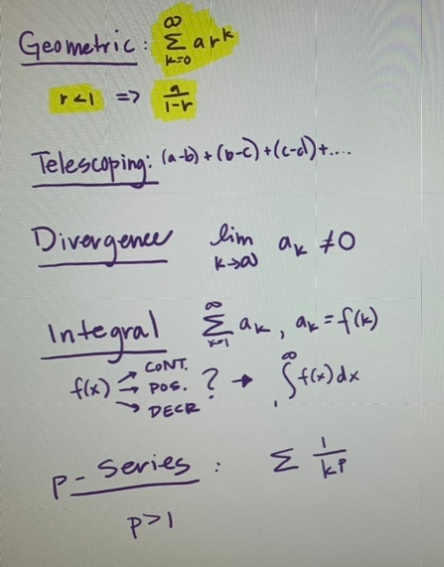 Geometric: ∞ Σ k=0 ar^k
r<1 => a/1-r
Telescoping: (a-b)+(b-c)+(c-d)+....
Divergence lim k→∞ a_k ≠0
Integral ∞ Σ k=1 a_k, a_k=f(k)
f(x) → CONT. → POS. → DECR ? → ∫_1^∞ f(x)dx
p-Series: Σ 1/k^p
p>1